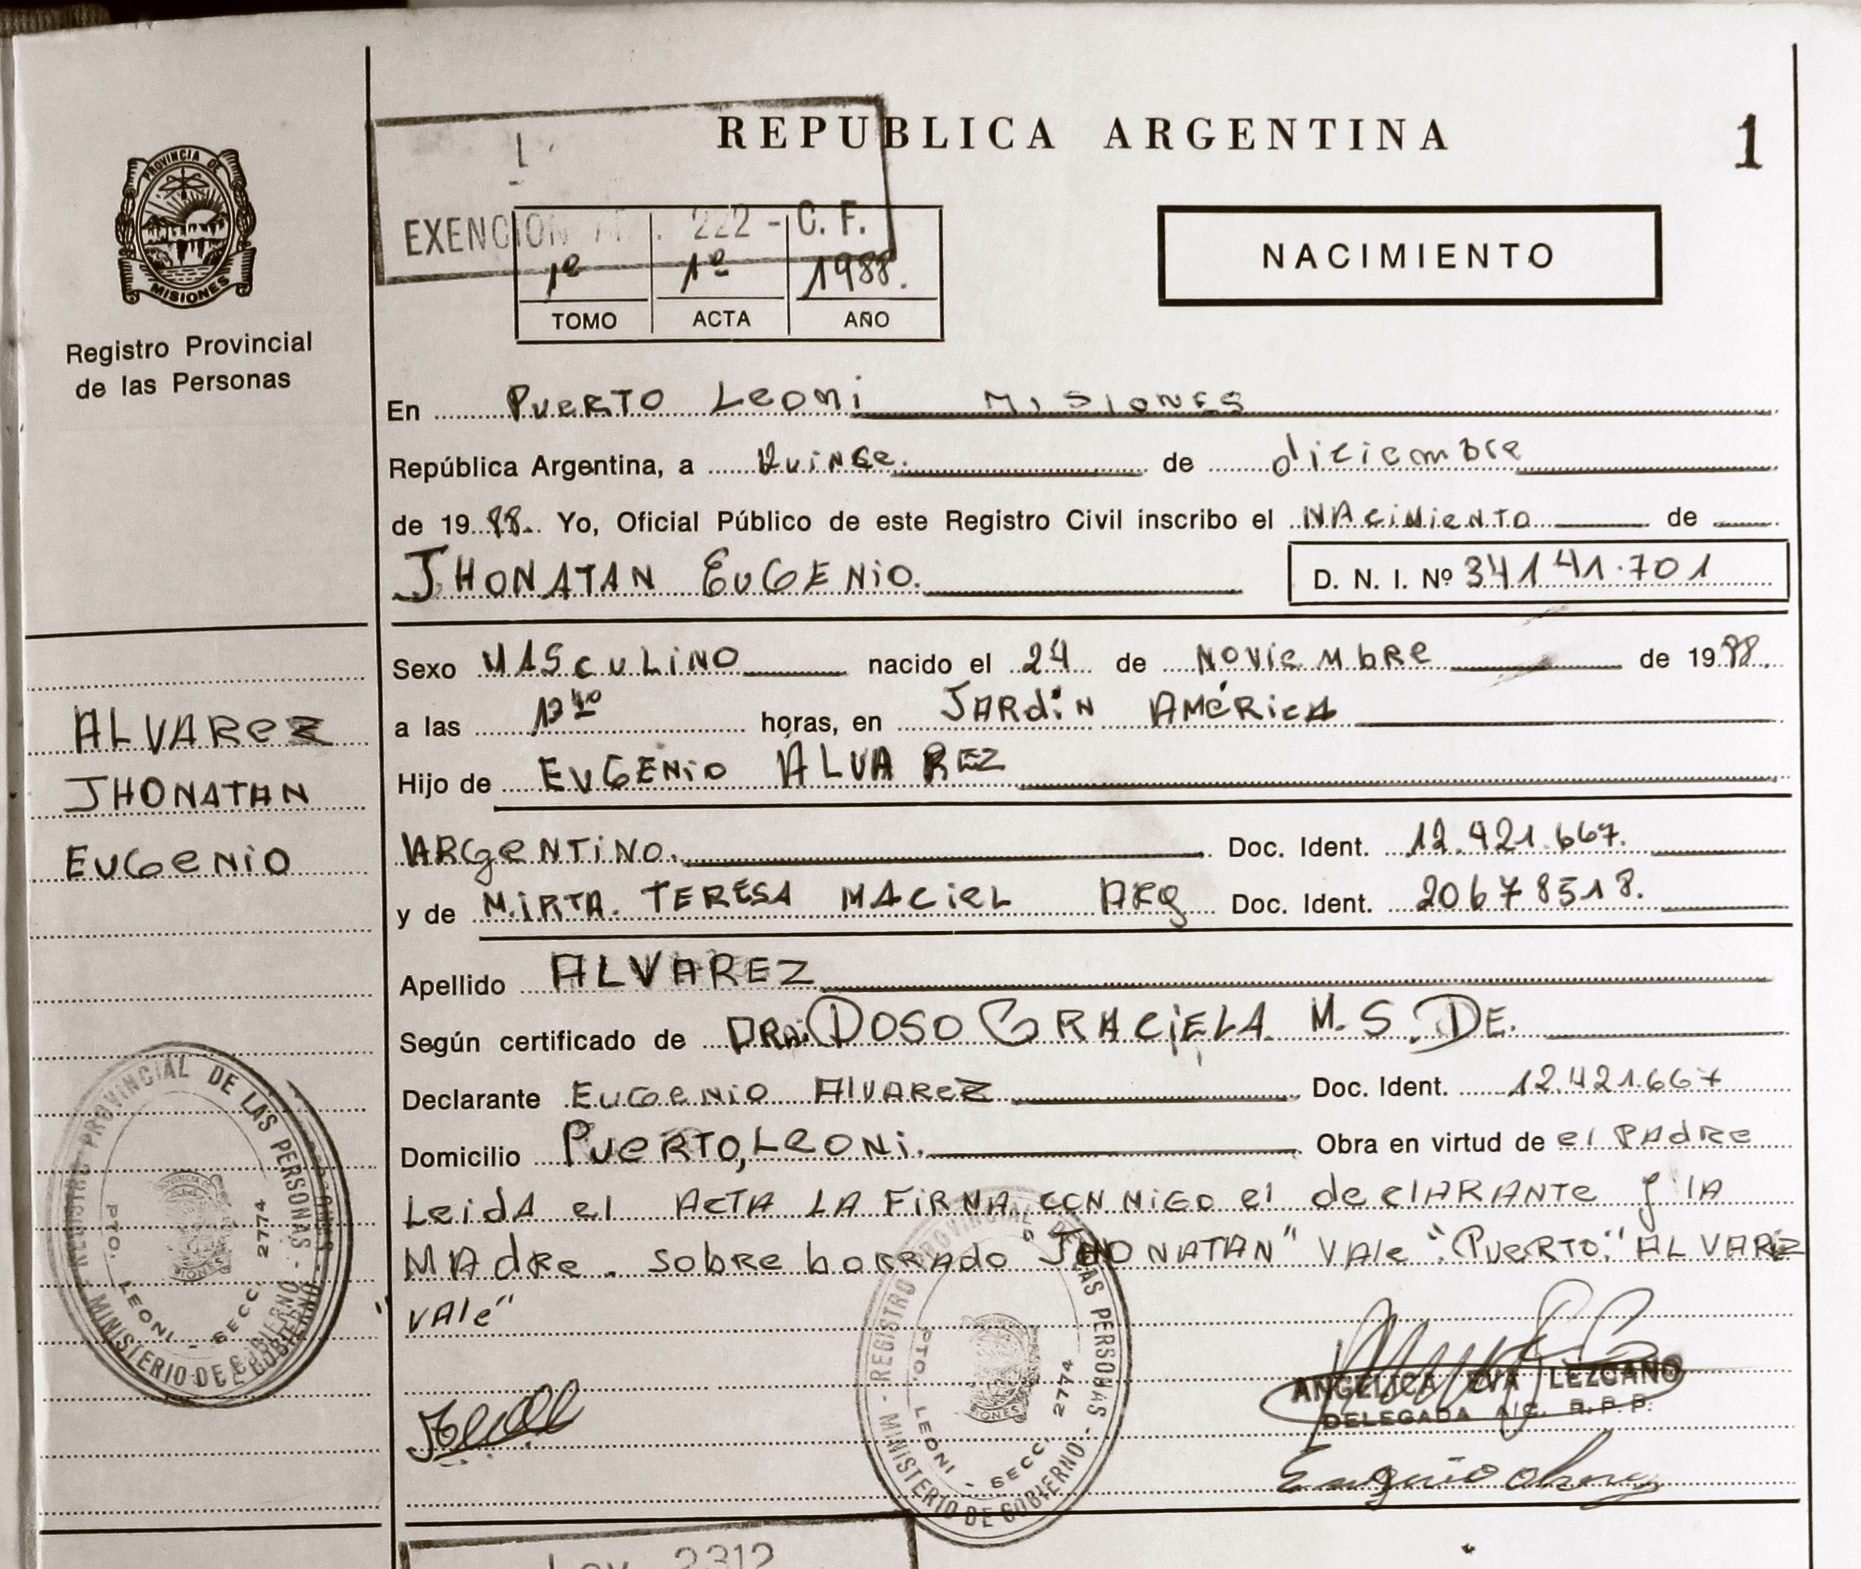 REPUBLICA ARGENTINA
1
PROVINCIA DE
MISIONES
Registro Provincial
de las Personas
EXENCION 222 - C. F.
1º 1º 1988.
TOMO ACTA AÑO
NACIMIENTO
En PUERTO LEONI MISIONES
República Argentina, a Quinse. de diciembre
de 19 88. Yo, Oficial Público de este Registro Civil inscribo el NACIMIENTO de
JHONATAN EUGENIO. D. N. I. Nº 34141.701
Sexo MASCULINO nacido el 24 de NOVIEMBRE de 19 88.
a las horas, en JARDÍN AMÉRICA
Hijo de EUGENIO ALVAREZ
ARGENTINO. Doc. Ident. 12.421.667.
y de MIRTA. TERESA MACIEL ARG Doc. Ident. 20678518.
Apellido ALVAREZ
Según certificado de DRA. DOSO GRACIELA M. S. DE.
Declarante EUGENIO ALVAREZ Doc. Ident. 12.421.667
Domicilio PUERTO, LEONI. Obra en virtud de el PADRE
LEIDA el ACTA LA FIRMA CONMIGO el declARANTE y lA
MADRE. SOBRE borrado JHONATAN" VAle "PUERTO." ALVAREZ
VAle"
ALVAREZ
JHONATAN
EUGENIO
REGISTRO PROVINCIAL DE LAS PERSONAS - MINISTERIO DE GOBIERNO -
PTO. LEONI - SECC. 2774
REGISTRO PROVINCIAL DE LAS PERSONAS - MINISTERIO DE GOBIERNO -
PTO. LEONI - SECC. 2774
ANGELICA EVA LEZCANO
DELEGADA A/C. R. P. P.
Ley 2312